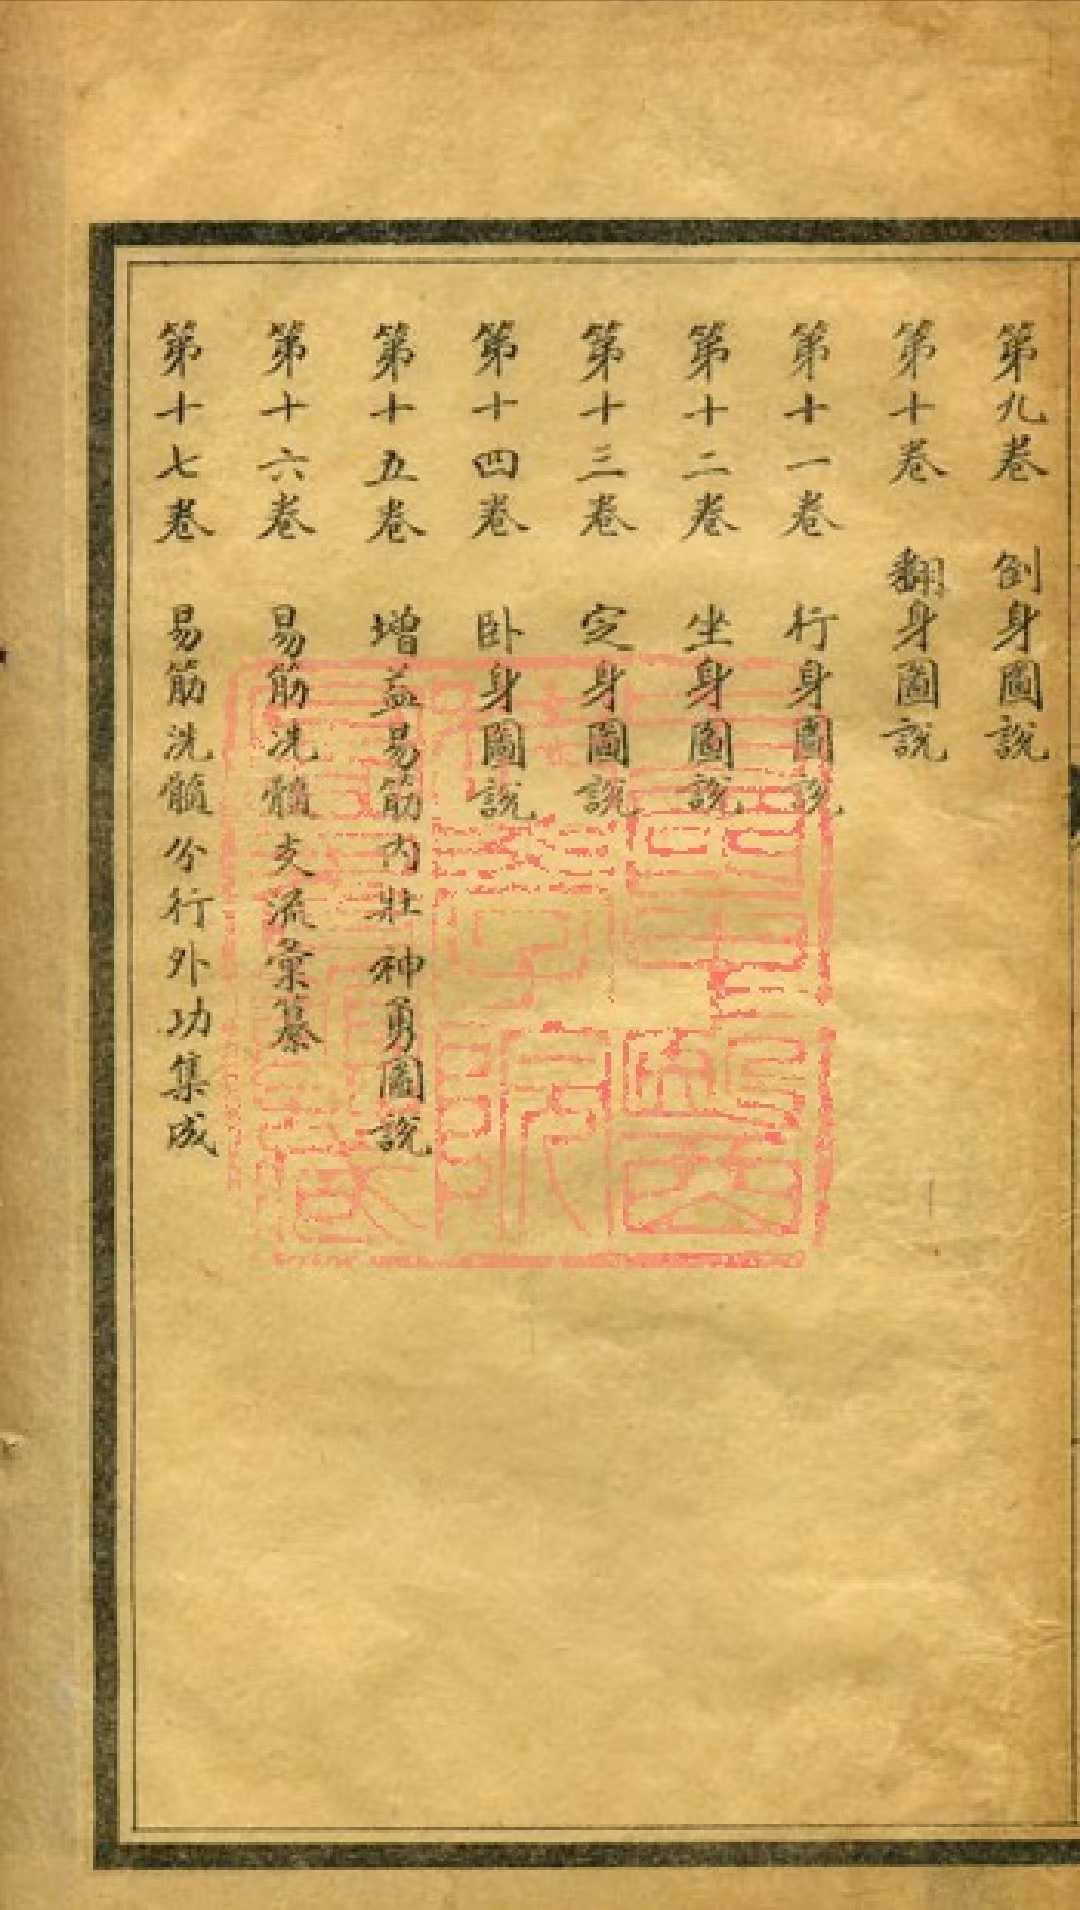 第九卷　倒身圖說
第十卷　翻身圖說
第十一卷　行身圖說
第十二卷　坐身圖說
第十三卷　定身圖說
第十四卷　卧身圖說
第十五卷　增益易筋內壯神勇圖說
第十六卷　易筋洗髓支流彙纂
第十七卷　易筋洗髓分行外功集成